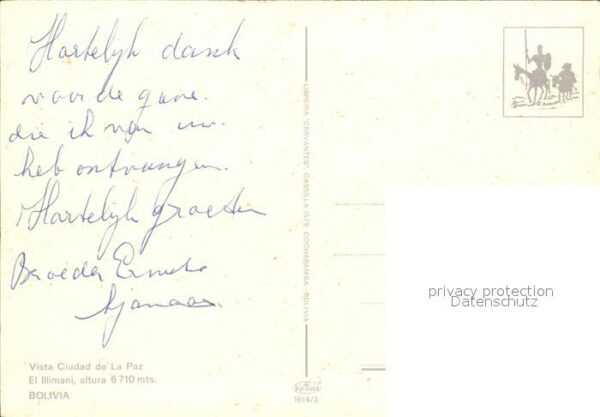 Hartelijk dank
voor de gave.
die ik van uw.
heb ontvangen.
Hartelijk groeten
Broeder
LIBRERIA "CERVANTES" CASSILLA 1579 COCHABAMBA BOLIVIA
privacy protection
Datenschutz
Vista Ciudad de La Paz
El Illimani, altura 6710 mts.
BOLIVIA
1614/3